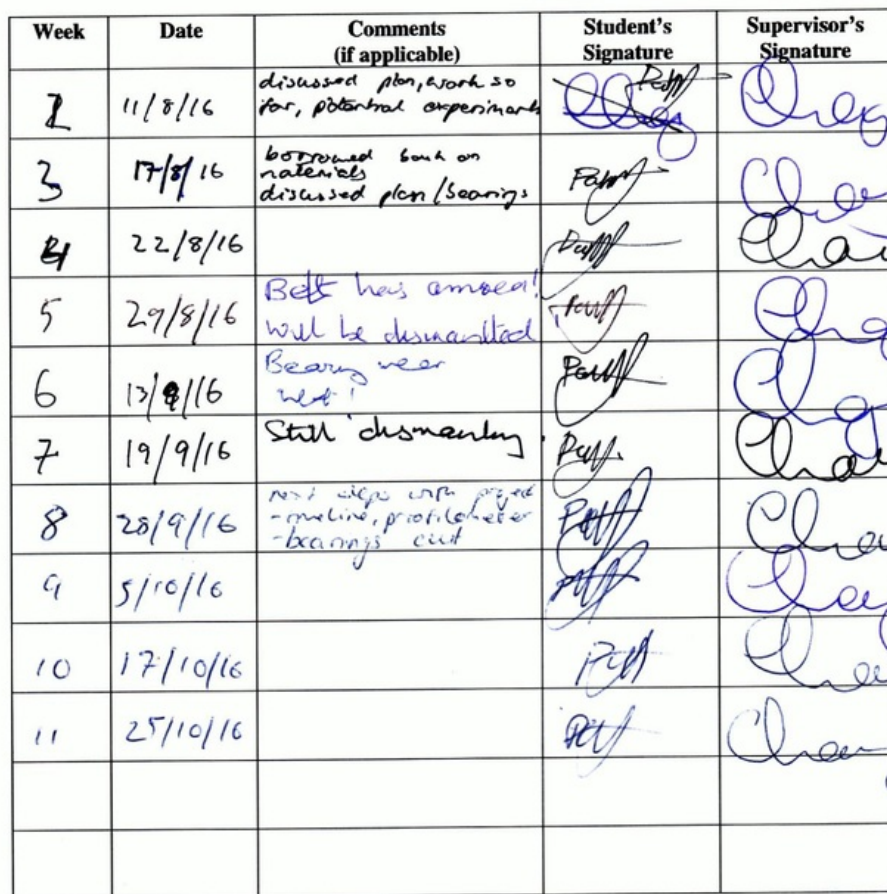 Week Date Comments (if applicable) Student's Signature Supervisor's Signature
2 11/8/16 discussed plan, work so
far, potential experiments
3 17/8/16 borrowed book on
materials
discussed plan/bearings
4 22/8/16
5 29/8/16 Belt has arrived!
will be dismantled
6 13/9/16 Bearing wear
next!
7 19/9/16 Still dismantling
8 28/9/16 next steps with project
- timeline, profilometer
- bearings cut
9 5/10/16
10 17/10/16
11 25/10/16